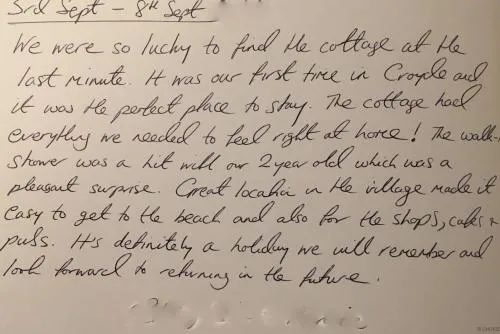 3rd Sept - 8th Sept
We were so lucky to find the cottage at the
last minute. It was our first time in Croyde and
it was the perfect place to stay. The cottage had
everything we needed to feel right at home! The walk-
shower was a hit with our 2 year old which was a
pleasant surprise. Great location in the village made it
easy to get to the beach and also for the shops, cafes +
pubs. It's definitely a holiday we will remember and
look forward to returning in the future.